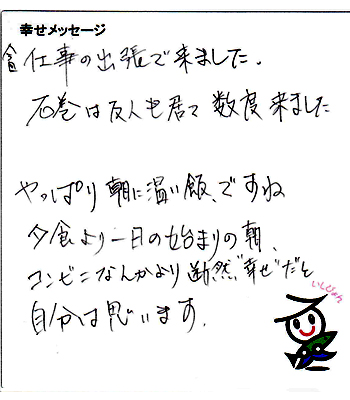 幸せメッセージ
今回仕事の出張で来ました.
石巻は友人も居て数度来ました
やっぱり朝に温い飯、ですね
夕食より一日の始まりの朝、
コンビニなんかより断然"幸せ"だと
自分は思います.
いしぴょん